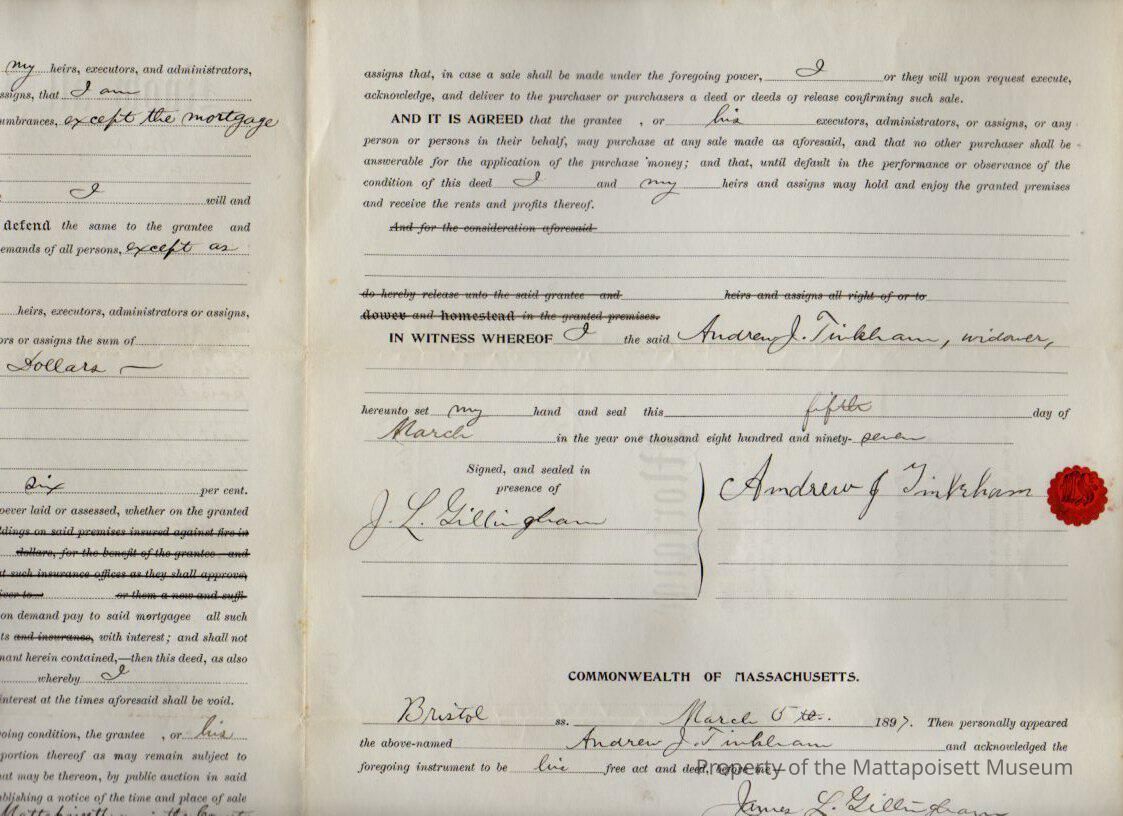 my heirs, executors, and administrators,
ssigns, that I am
umbrances, except the mortgage
I will and
defend the same to the grantee and
emands of all persons, except as
heirs, executors, administrators or assigns,
ors or assigns the sum of
Dollars
six per cent.
oever laid or assessed, whether on the granted
ldings on said premises insured against fire in
dollars, for the benefit of the grantee and
at such insurance offices as they shall approve,
iver to or them a new and suffi-
on demand pay to said mortgagee all such
ts and insurance, with interest; and shall not
nant herein contained,—then this deed, as also
whereby I
interest at the times aforesaid shall be void.
going condition, the grantee , or his
portion thereof as may remain subject to
hat may be thereon, by public auction in said
ublishing a notice of the time and place of sale
Mattapoisett in the
assigns that, in case a sale shall be made under the foregoing power, I or they will upon request execute,
acknowledge, and deliver to the purchaser or purchasers a deed or deeds of release confirming such sale.
AND IT IS AGREED that the grantee , or his executors, administrators, or assigns, or any
person or persons in their behalf, may purchase at any sale made as aforesaid, and that no other purchaser shall be
answerable for the application of the purchase money; and that, until default in the performance or observance of the
condition of this deed I and my heirs and assigns may hold and enjoy the granted premises
and receive the rents and profits thereof.
And for the consideration aforesaid
do hereby release unto the said grantee and heirs and assigns all right of or to
dower and homestead in the granted premises.
IN WITNESS WHEREOF I the said Andrew J. Tinkham, widower,
hereunto set my hand and seal this fifth day of
March in the year one thousand eight hundred and ninety- seven
Signed, and sealed in
presence of
J. L. Gillingham
Andrew J Tinkham
COMMONWEALTH OF MASSACHUSETTS.
Bristol ss. March 5th. 1897. Then personally appeared
the above-named Andrew J. Tinkham and acknowledged the
foregoing instrument to be his free act and deed, before me—
Property of the Mattapoisett Museum
James L. Gillingham